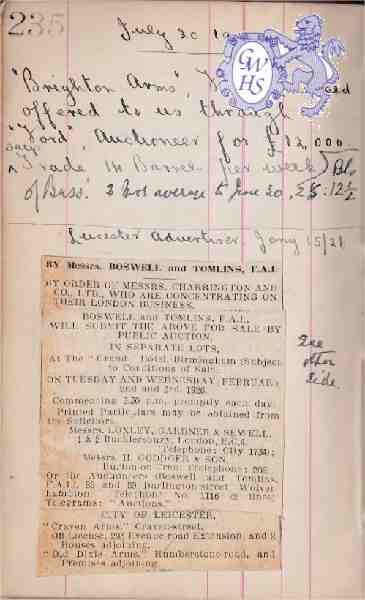 235
July 20 19
"Brighton Arms",
offered to us through
"Ford", Auctioneer for £12,000
says
Trade 1½ Barrels per week
of Bass.
GWHS
Leicester Advertiser. Jany 15/21
BY Messrs. BOSWELL and TOMLINS, F.A.I.
BY ORDER OF MESSRS. CHARRINGTON AND
CO., LTD., WHO ARE CONCENTRATING ON
THEIR LONDON BUSINESS.
BOSWELL and TOMLINS, F.A.I.,
WILL SUBMIT THE ABOVE FOR SALE BY
PUBLIC AUCTION,
IN SEPARATE LOTS,
At The "Grand" Hotel, Birmingham (Subject
to Conditions of Sale),
ON TUESDAY AND WEDNESDAY, FEBRUARY
and 2nd,
Commencing 2.30 p.m. promptly each day.
Printed Particulars may be obtained from
the Solicitors,
Messrs. LOXLEY, GARDNER & SEWELL,
Bucklersbury, London, E.C.4.
Telephone: City
Messrs. H. GOODGER & SON,
Burton-on-Trent (Telephone:
Or the Auctioneers (Boswell and Tomlins,
F.A.I.), Darlington-street, Wolver-
hampton. Telephone No. 1116
Telegrams: "Auctions."
CITY OF LEICESTER.
"Craven Arms," Craven-street.
On License, Evence road Extension, and 2
Houses adjoining.
"Old Dixie Arms," Humberstone-road, and
Premises adjoining.
See
other
side.